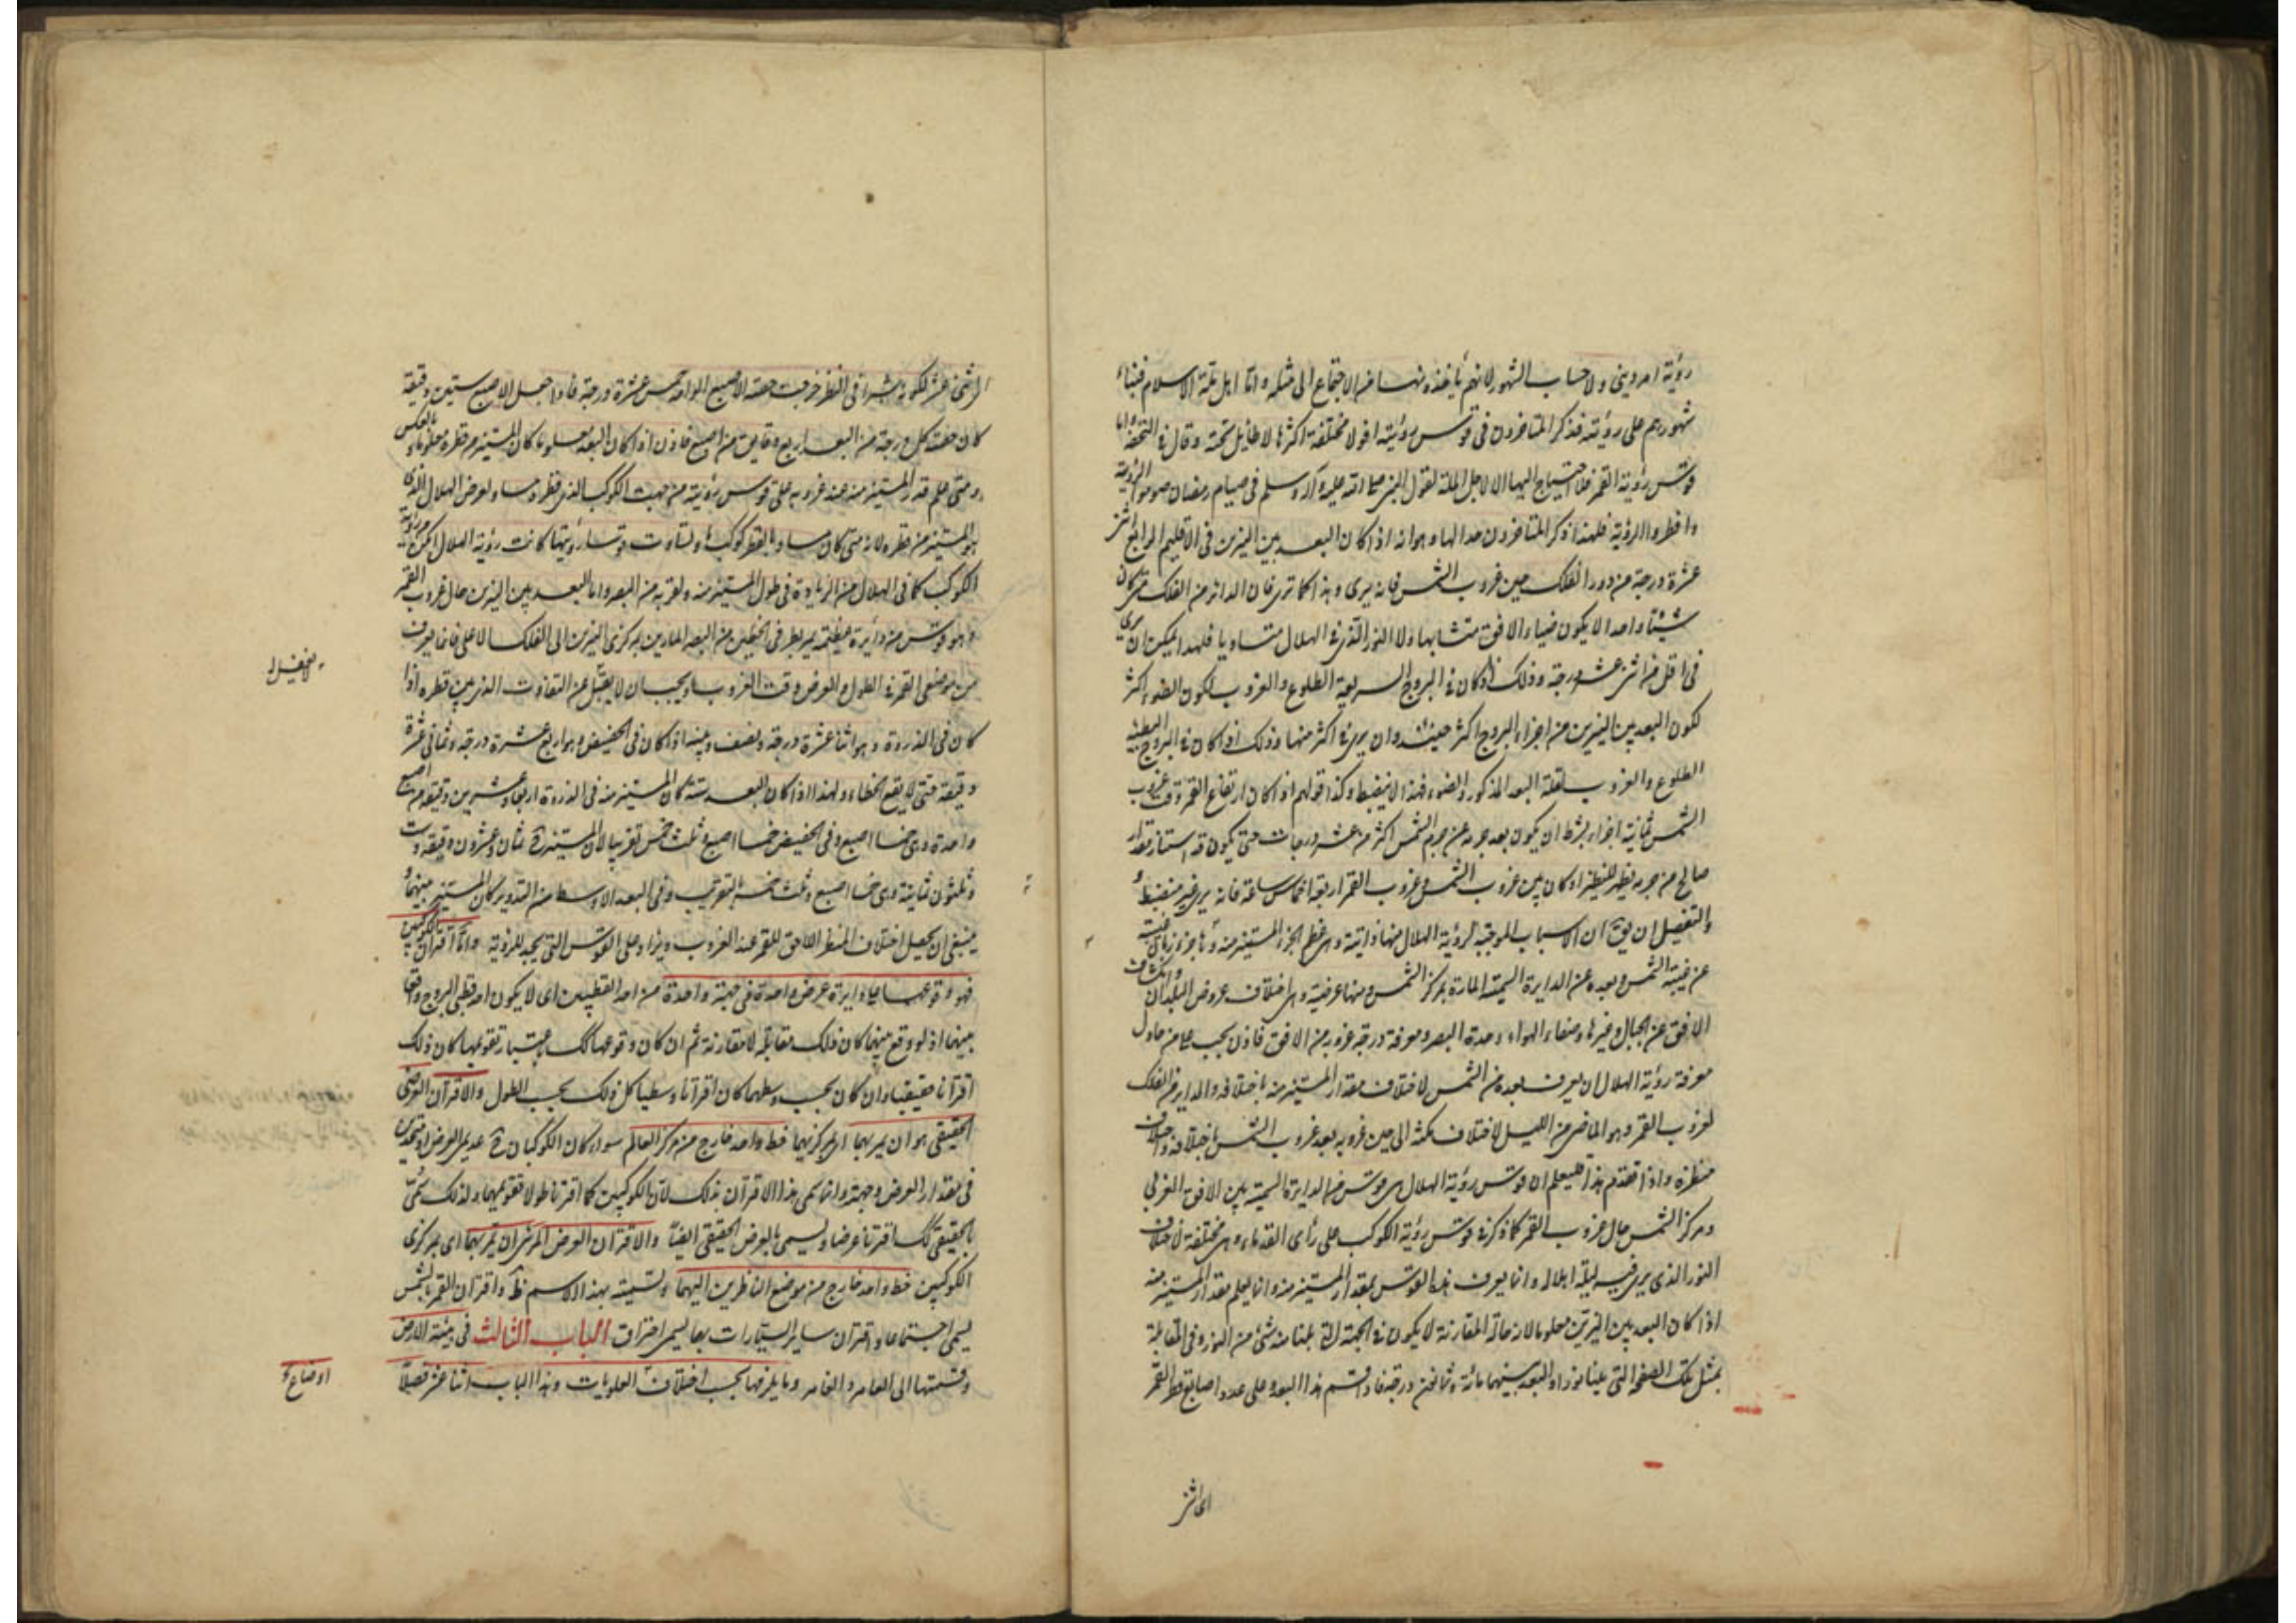 رؤية امر ديني ولا حساب الشهور لانهم يأخذونها من الاجتماع الى مثله واما اهل ملة الاسلام فبناء
شهورهم على رؤيته فذكر المتأخرون في قوس رؤيته اقولا مختلفة اكثرها لا طائل تحته وقال في التحفة واما
قوس رؤية القمر فلا احتياج اليها الا لاجل الملة لقول النبي صلى الله عليه وآله وسلم في صيام رمضان صوموا لرؤيته
وافطروا لرؤيته فلهذا ذكر المتأخرون حدا لها وهو انه اذا كان البعد بين النيرين في الاقليم الرابع اثنى
عشرة درجة من دور الفلك حين غروب الشمس فانه يرى وهذا كما ترى فان الدائر من الفلك متى كان
شيئا واحدا لا يكون ضياء الافق متشابها ولا النور الذي في الهلال متساويا فلهذا يمكن ان يرى
في اقل من اثنى عشر درجة وذلك اذا كان في البروج السريعة الطلوع والغروب لكون الضوء اكثر
لكون البعد بين النيرين من اجزاء البروج اكثر حينئذ وان يرى في اكثر منها وذلك اذا كان في البروج البطيئة
الطلوع والغروب لقلة البعد المذكور والضوء فهذا لا ينضبط وكذا قولهم اذا كان ارتفاع القمر وقت غروب
الشمس ثمانية اجزاء بشرط ان يكون بعد جرمه عن جرم الشمس اكثر من عشر درجات حتى يكون قد استنار مقدار
صالح من جرمه يظهر للنظر او كان بين غروب الشمس وغروب القمر اربعة اخماس ساعة فانه يرى غير منضبط و
والتفصيل ان يق ان الاسباب الموجبة لرؤية الهلال منها ذاتية وهى عظم الجزء المستنير منه وتأخره زمانى غيبته
عن غيبة الشمس وبعده عن الدايرة السمتية المارة بمركز الشمس ومنها عرضية وهى اختلاف عروض البلدان وانكشاف
الافق عن الجبال وغيرها وصفاء الهواء وحدة البصر ومعرفة درجة غروبه من الافق فاذن يجب على من حاول
معرفة رؤية الهلال ان يعرف بعده من الشمس لاختلاف مقدار المستنير منه باختلافه والداير من الفلك
لغروب القمر وهو الماضى من الليل لاختلاف مكثه الى حين غروبه بعد غروب الشمس باختلافه واختلاف
منظره واذا تقدم هذا فليعلم ان قوس رؤية الهلال هى قوس من الدايرة السمتية بين الافق الغربي
ومركز الشمس حال غروب القمر كما ذكر في قوس رؤية الكوكب على رأى القدماء وهى مختلفة لاختلاف
النور الذى يرى فيه ليلة اهلاله وانما يعرف هذا القوس بمقدار المستنير منه وانما يعلم مقدار المستنير منه
اذا كان البعد بين النيرين معلوما لان حالة المقارنة لا يكون في الجهة التى تلينا منه شئ من النور وفى المقابلة
يمتلى تلك الصفحة التى تلينا نورا والبعد بينهما مائة وثمانون درجة فاذا قسم هذا البعد على عدد اصابع قطر القمر
اى اثنى
اى اثنى عشر لكونه شبرا في النظر خرجت حصة الاصبع الواحد خمس عشرة درجة فاذا جعل الاصبع ستين دقيقة
كان حصة كل درجة من البعد اربع دقايق من اصبع فاذن اذا كان البعد معلوما كان المستنير من قطره معلوما وبالعكس
ومتى علم قدر المستنير منه عند غروبه علم قوس رؤيته من جهت الكوكب الذى قطره مساو لعرض الهلال الذى
هو المستنير من قطره لانه متى كان مساويا لقطر كوكب ما وتساوت قوسا رؤيتهما كانت رؤية الهلال امكن من رؤية
الكوكب كما في الهلال من الزيادة في طول المستنير منه ولقربه من البصر واما البعد بين النيرين حال غروب القمر
وهو قوس من دائرة عظيمة يمر بطرفى الخطين من البصر المارين بمركزى النيرين الى الفلك الاعلى فانما يعرف
من موضعى القمر في الطول والعرض وقت الغروب ويجب ان لا يغفل عن التفاوت الذى بين قطره اذا
كان في الذروة وهو اثنا عشرة درجة ونصف وبينه اذا كان في الحضيض وهو اربع عشرة درجة وثمانى عشرة
دقيقة حتى لا يقع الخطاء ولهذا اذا كان البعد ستة كان المستنير منه في الذروة اربعا وعشرين دقيقة من اصبع
واحدة وهى خمسا اصبع وفى الحضيض خمسا اصبع وثلث خمس تقريبا لان المستنير ح ثمان وعشرون دقيقة وست
وثلثون ثانية وهى خمسا اصبع وثلث خمسه بالتقريب وفى البعد الاوسط من التدوير كان المستنير بينهما و
ينبغى ان يحصل اختلاف المنظر اللاحق للقمر عند الغروب ويزاد على القوس التى يجب للرؤية واما اقتران الكوكبين
فهو وقوعهما على دايرة عرض واحدة في جهة واحدة من احد القطبين اى لا يكون احد قطبى البروج واقعا
بينهما اذ لو وقع بينهما كان ذلك مقابلة لا مقارنة ثم ان كان وقوعهما كك باعتبار تقويمهما كان ذلك
اقترانا حقيقيا وان كان بحسب وسطهما كان اقترانا وسطيا كل ذلك بحسب الطول والاقتران العرضى
الحقيقى هو ان يمر بهما اى بمركزيهما خط واحد خارج من مركز العالم سواء كان الكوكبان ح عديمى العرض او متحدى
في مقدار العرض وجهته وانما سمى هذا الاقتران بذلك لان الكوكبين كما اقترنا طولا فقويهما ولذلك سمى
بالحقيقى كك اقترنا عرضا وليسمى بالعرض الحقيقى ايضا والاقتران العرضى المرئى ان يمر بهما اى بمركزى
الكوكبين خط واحد خارج من موضع الناظرين اليهما وتسميته بهذا الاسم ظ واقتران القمر بالشمس
يسمى اجتماعا واقتران ساير السيارات بها يسمى احتراق الباب الثالث في هيئة الارض
وقسمتها الى العامر والغامر وما يلزمها بحسب اختلاف اوضاع العلويات وهذا الباب اثنا عشر فصلا